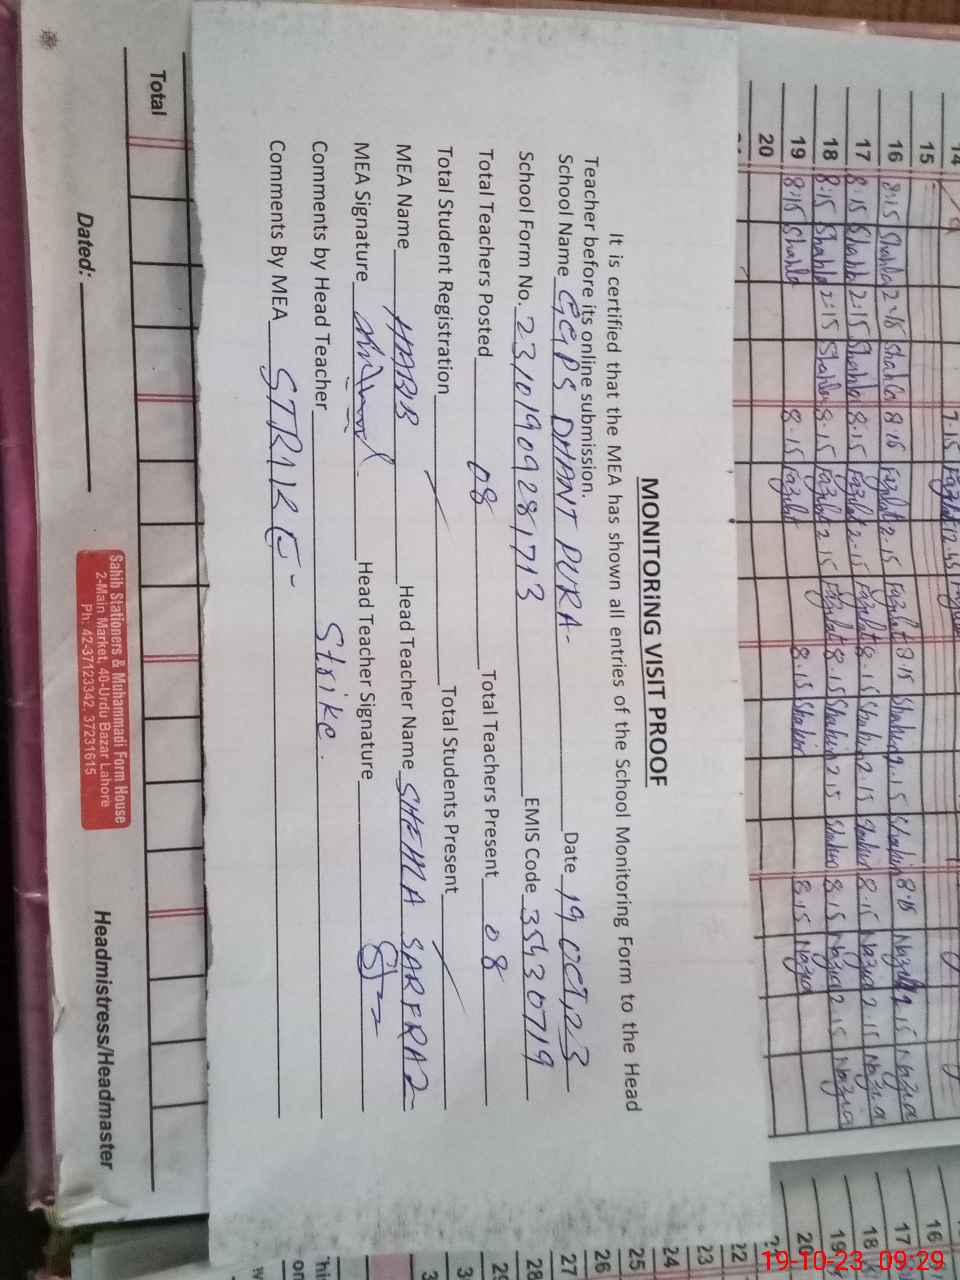 MONITORING VISIT PROOF
It is certified that the MEA has shown all entries of the School Monitoring Form to the Head
Teacher before its online submission.
School Name GGPS DHANT PURA- Date 19 OCT, 23
School Form No. 231019092817 13 EMIS Code 35430719
Total Teachers Posted 08 Total Teachers Present 08
Total Student Registration Total Students Present
MEA Name HABB Head Teacher Name SHEMA SARFRAZ
MEA Signature Head Teacher Signature
Comments by Head Teacher Strike.
Comments By MEA STRIKE-
14
15
16 8:15 Shahla 2:15 Shahla 8:15 Fazilat 2:15 Fazilat 8:15 Shakir 2:15 Shakir 8:15 Nazia 2:15 Nazia
17 8:15 Shahla 2:15 Shahla 8:15 Fazilat 2:15 Fazilat 8:15 Shakir 2:15 Shakir 8:15 Nazia 2:15 Nazia
18 8:15 Shahla 2:15 Shahla 8:15 Fazilat 2:15 Fazilat 8:15 Shakir 2:15 Shakir 8:15 Nazia 2:15 Nazia
19 8:15 Shahla 8:15 Fazilat 8:15 Shakir 8:15 Nazia
20
Total
Dated:
Sahib Stationers & Muhammadi Form House
2-Main Market, 40-Urdu Bazar Lahore
Ph: 42-37123342, 37231615
Headmistress/Headmaster
16
17
18
19
20
22
23
24
25
26
27
28
29
19-10-23 09:29